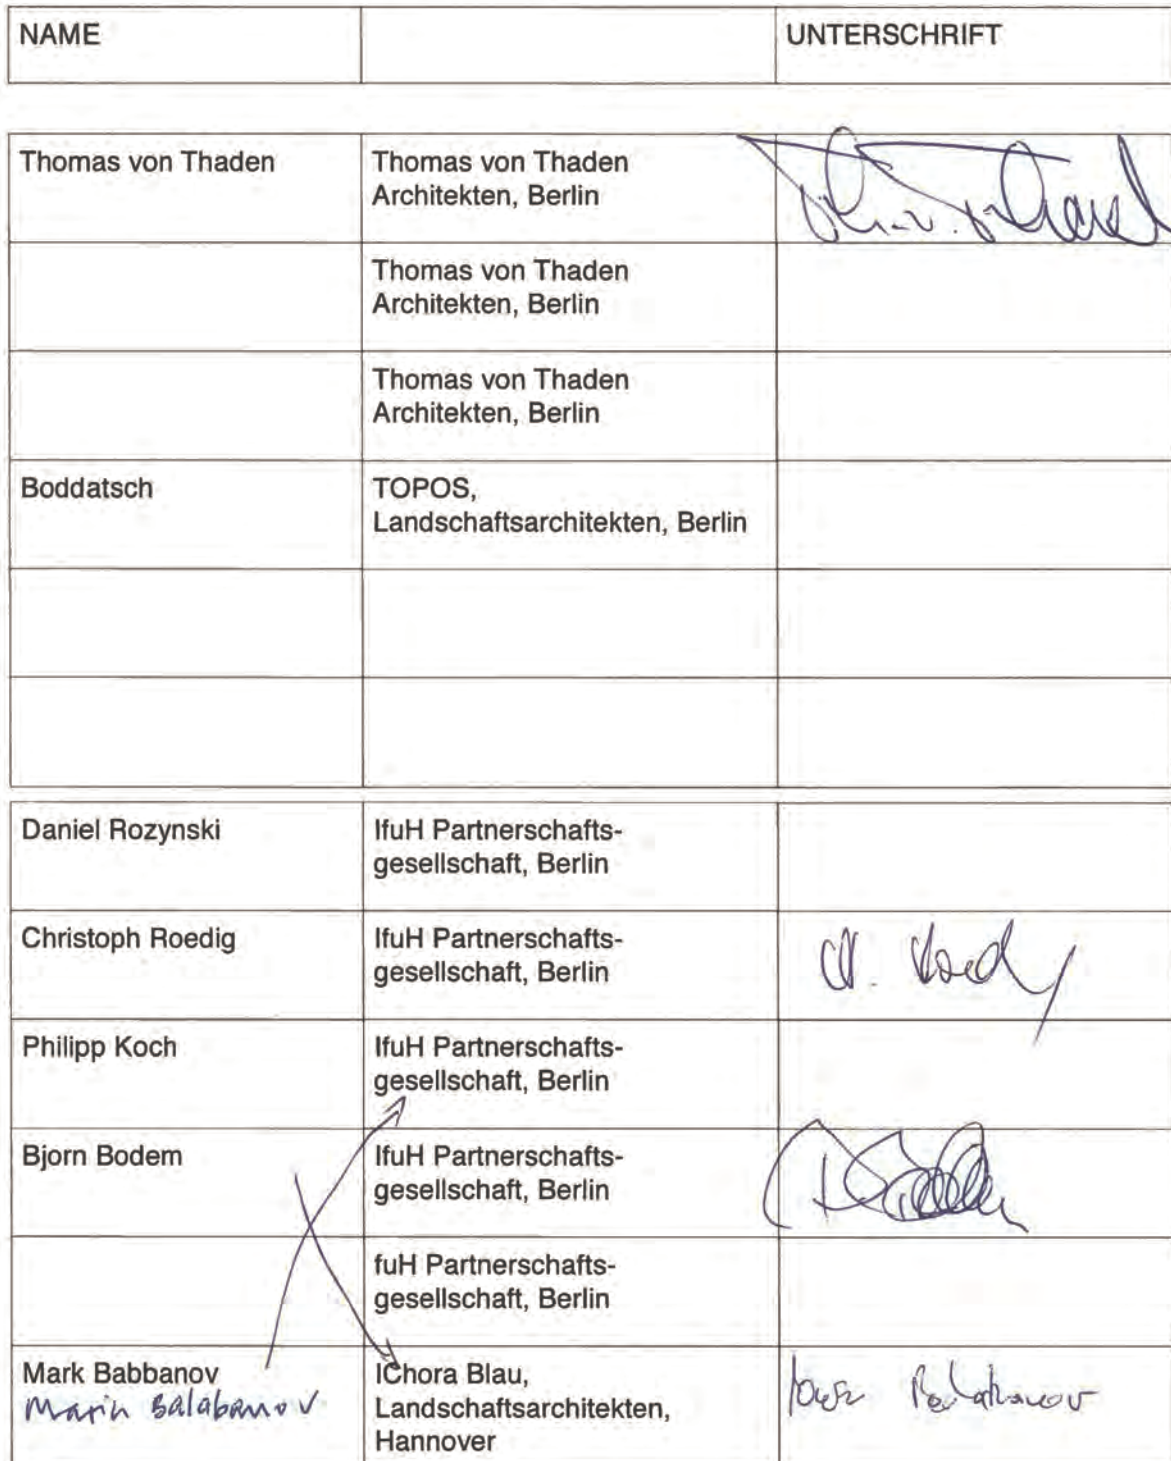 NAME
UNTERSCHRIFT
Thomas von Thaden
Thomas von Thaden
Architekten, Berlin
Thomas von Thaden
Architekten, Berlin
Thomas von Thaden
Architekten, Berlin
Boddatsch
TOPOS,
Landschaftsarchitekten, Berlin
Daniel Rozynski
IfuH Partnerschafts-
gesellschaft, Berlin
Christoph Roedig
IfuH Partnerschafts-
gesellschaft, Berlin
Philipp Koch
IfuH Partnerschafts-
gesellschaft, Berlin
Bjorn Bodem
IfuH Partnerschafts-
gesellschaft, Berlin
fuH Partnerschafts-
gesellschaft, Berlin
Mark Babbanov
Marin Balabanov
IChora Blau,
Landschaftsarchitekten,
Hannover